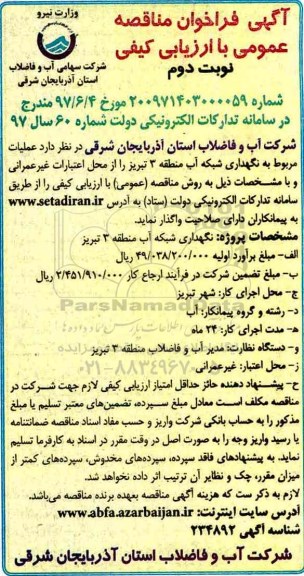 وزارت نیرو
شرکت سهامی آب و فاضلاب
استان آذربایجان شرقی
آگهی فراخوان مناقصه
عمومی با ارزیابی کیفی
نوبت دوم
شماره ۲۰۰۹۷۱۴۰۳۰۰۰۰۵۹ مورخ ۹۷/۶/۴ مندرج
در سامانه تدارکات الکترونیکی دولت شماره ۶۰ سال ۹۷
شرکت آب و فاضلاب استان آذربایجان شرقی در نظر دارد عملیات
مربوط به نگهداری شبکه آب منطقه ۳ تبریز را از محل اعتبارات غیرعمرانی
و با مشخصات ذیل به روش مناقصه (عمومی) با ارزیابی کیفی را از طریق
سامانه تدارکات الکترونیکی دولت (ستاد) به آدرس www.setadiran.ir
به پیمانکاران دارای صلاحیت واگذار نماید.
مشخصات پروژه: نگهداری شبکه آب منطقه ۳ تبریز
الف- مبلغ برآورد اولیه ۴۹/۰۳۸/۲۰۰/۰۰۰ ریال
ب- مبلغ تضمین شرکت در فرآیند ارجاع کار ۲/۴۵۱/۹۱۰/۰۰۰ ریال
ج- محل اجرای کار: شهر تبریز
د- رشته و گروه پیمانکار: آب
ه- مدت اجرای کار: ۲۴ ماه
و- دستگاه نظارت: مدیر آب و فاضلاب منطقه ۳ تبریز
ز- محل اعتبار: غیرعمرانی
ح- پیشنهاد دهنده حائز حداقل امتیاز ارزیابی کیفی لازم جهت شرکت در
مناقصه مکلف است معادل مبلغ سپرده، تضمین‌های معتبر تسلیم یا مبلغ
مذکور را به حساب بانکی شرکت واریز و حسب مفاد اسناد مناقصه ضمانتنامه
یا رسید واریز وجه را به صورت اصل در وقت مقرر در اسناد به کارفرما تسلیم
نماید. به پیشنهادهای فاقد سپرده، سپرده‌های مخدوش، سپرده‌های کمتر از
میزان مقرر، چک و نظایر آن ترتیب اثر داده نخواهد شد.
لازم به ذکر ست که هزینه آگهی مناقصه بعهده برنده مناقصه می‌باشد.
آدرس سایت اینترنت: www.abfa.azarbaijan.ir
شناسه آگهی ۲۳۴۸۹۲
شرکت آب و فاضلاب استان آذربایجان شرقی
ParsNamadData
۰۲۱-۸۸۳۴۹۶۷۰